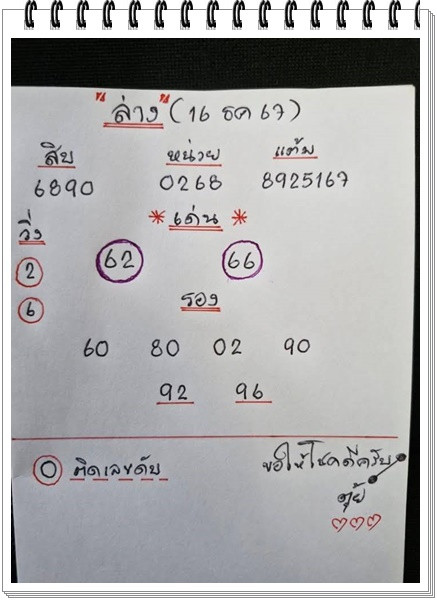 "ล่าง" (16 ธค 67)
สิบ หน่วย แต้ม
6890 0268 8925167
วิ่ง * เด่น *
2 62 66
6 รอง
60 80 02 90
92 96
0 ติดเลขดับ ขอให้โชคดีครับ
ตุ้ย